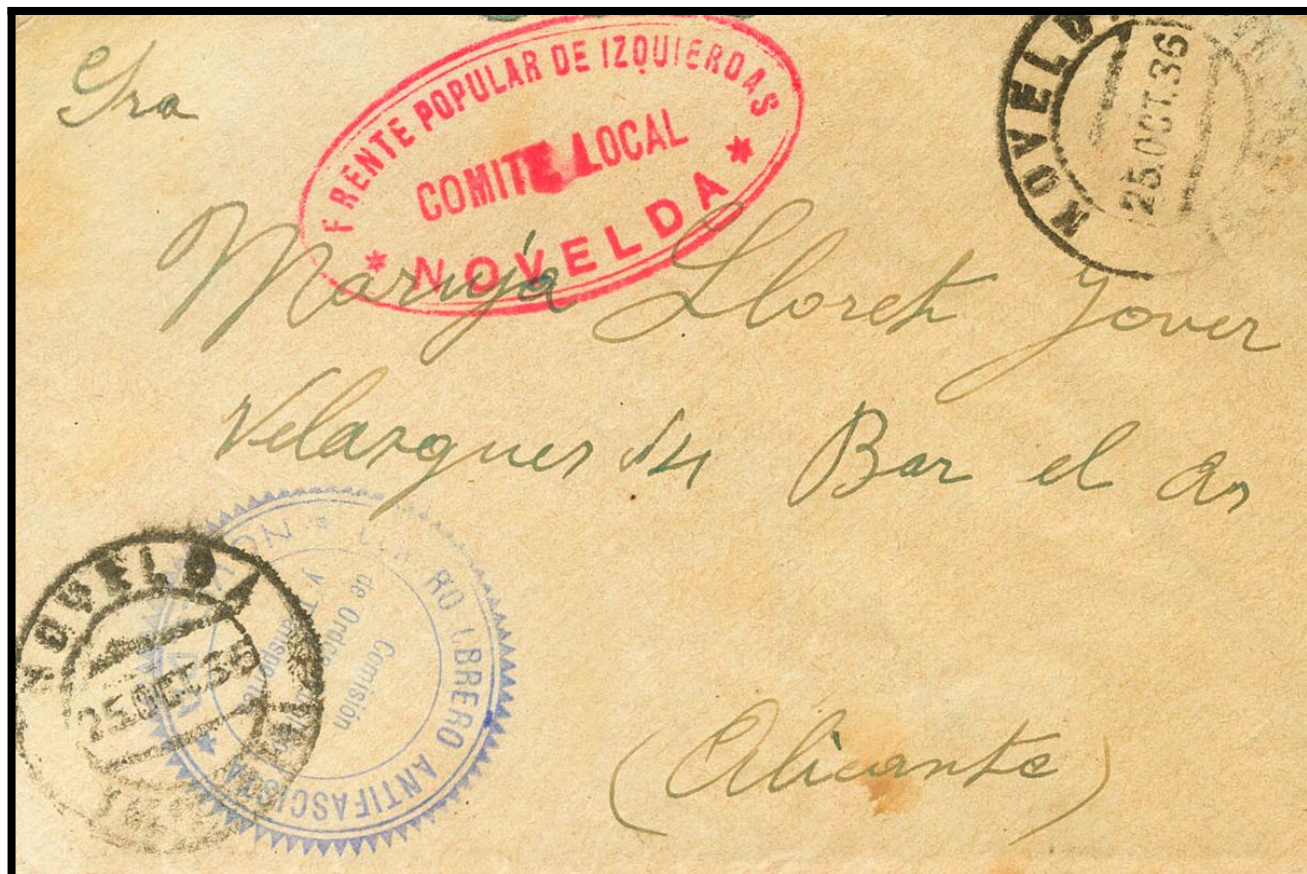 Sra
FRENTE POPULAR DE IZQUIERDAS
COMITE LOCAL
* NOVELDA *
NOVELDA
25.OCT.36
Maruja Lloret Jover
Velasques 14 Bar el as
NOVELDA
25.OCT.36
OBRERO ANTIFASCISTA
Comisión
de Orden
y
(Alicante)